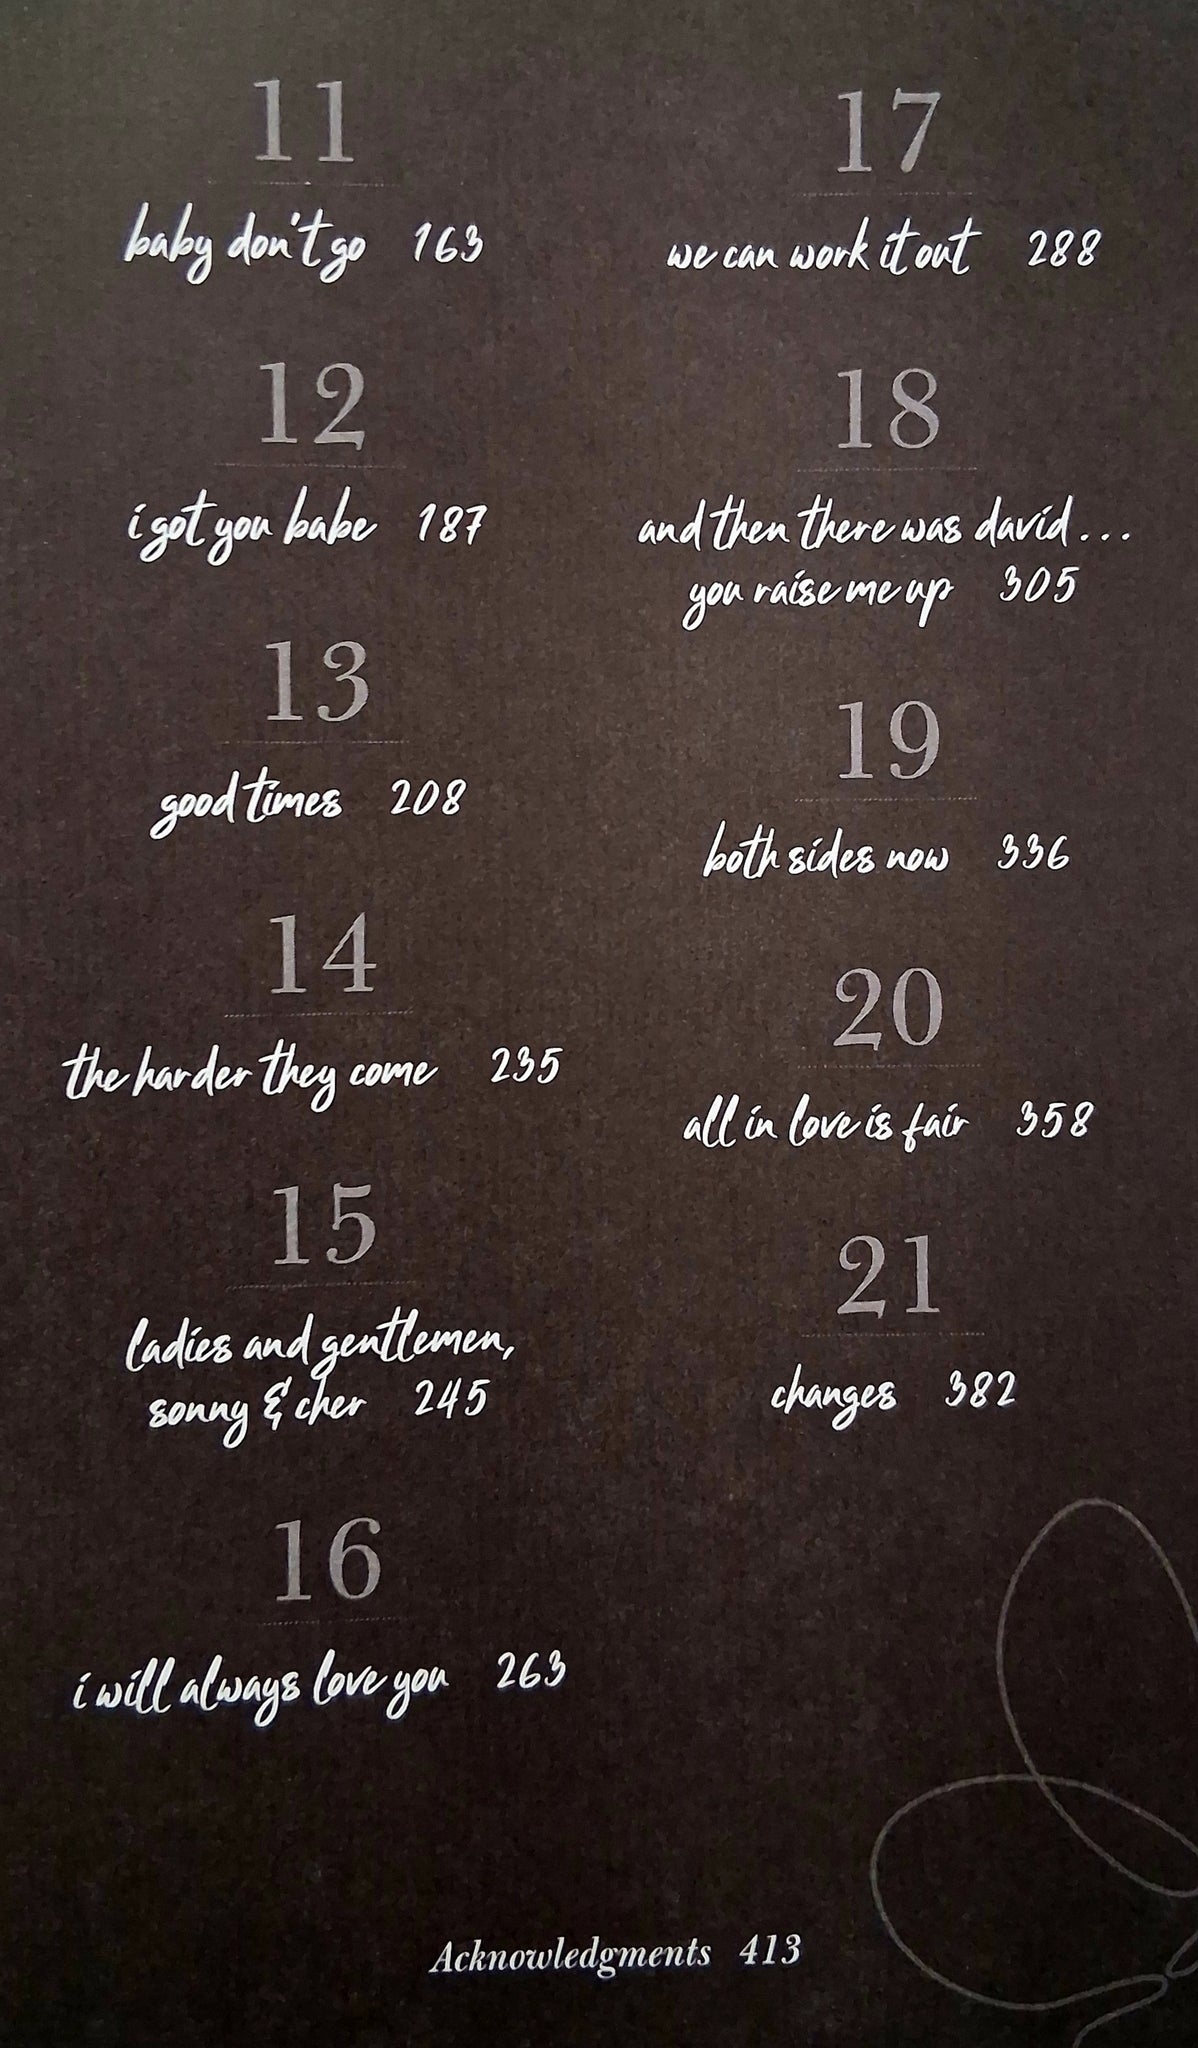 11
baby don't go 163
12
i got you babe 187
13
good times 208
14
the harder they come 235
15
ladies and gentlemen,
sonny & cher 245
16
i will always love you 263
17
we can work it out 288
18
and then there was david...
you raise me up 305
19
both sides now 336
20
all in love is fair 358
21
changes 382
Acknowledgments 413